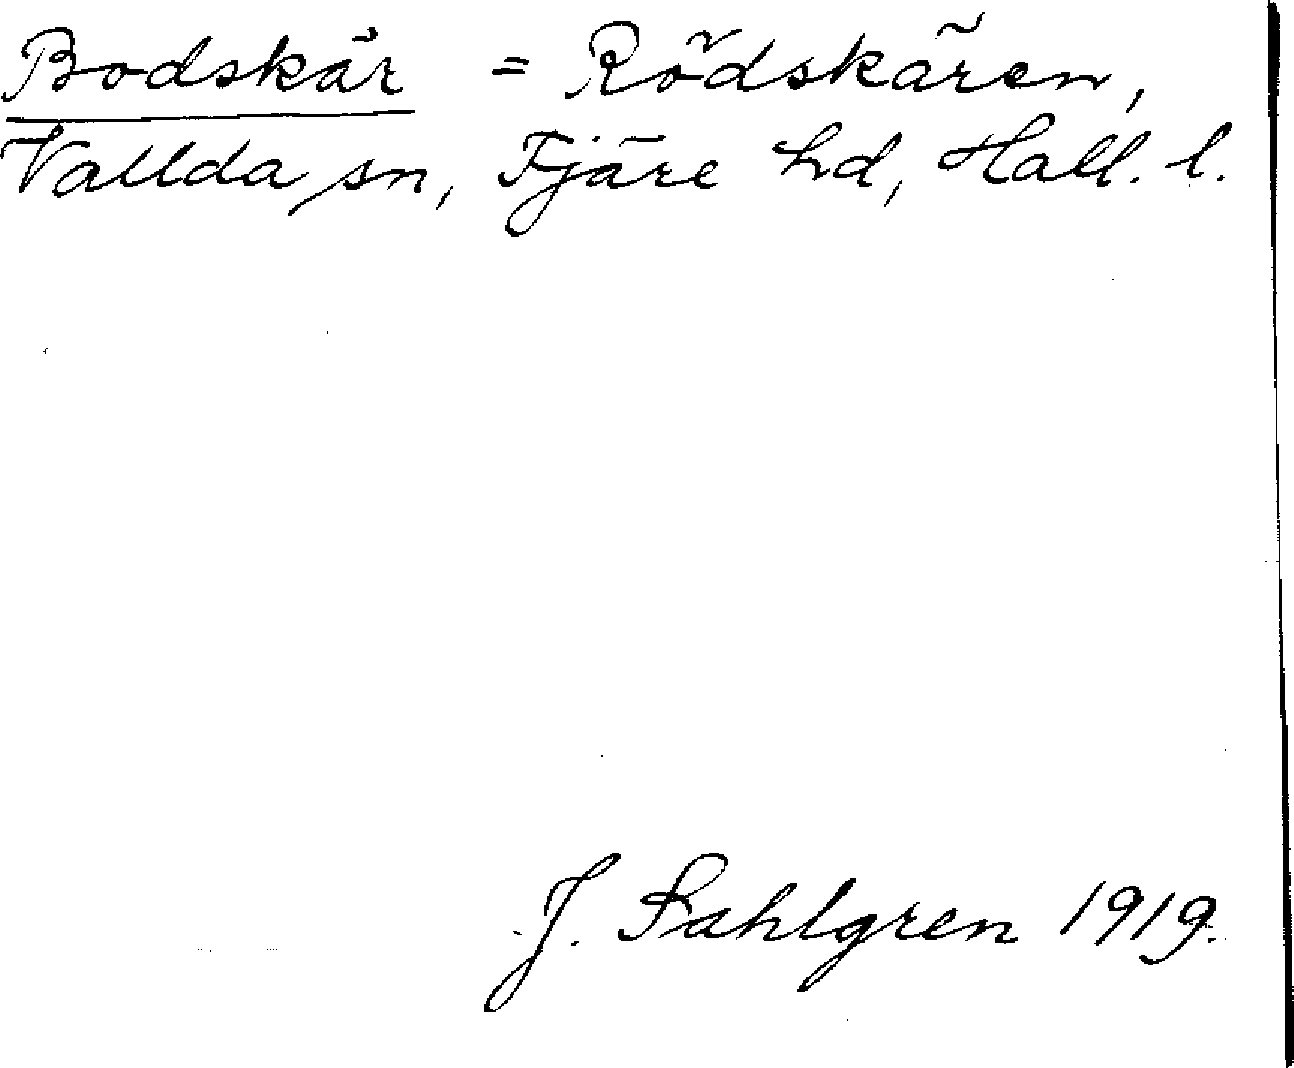 Bodskär = Rödskären,
Vallda sn, Fjäre hd, Hall. l.
J. Sahlgren 1919.